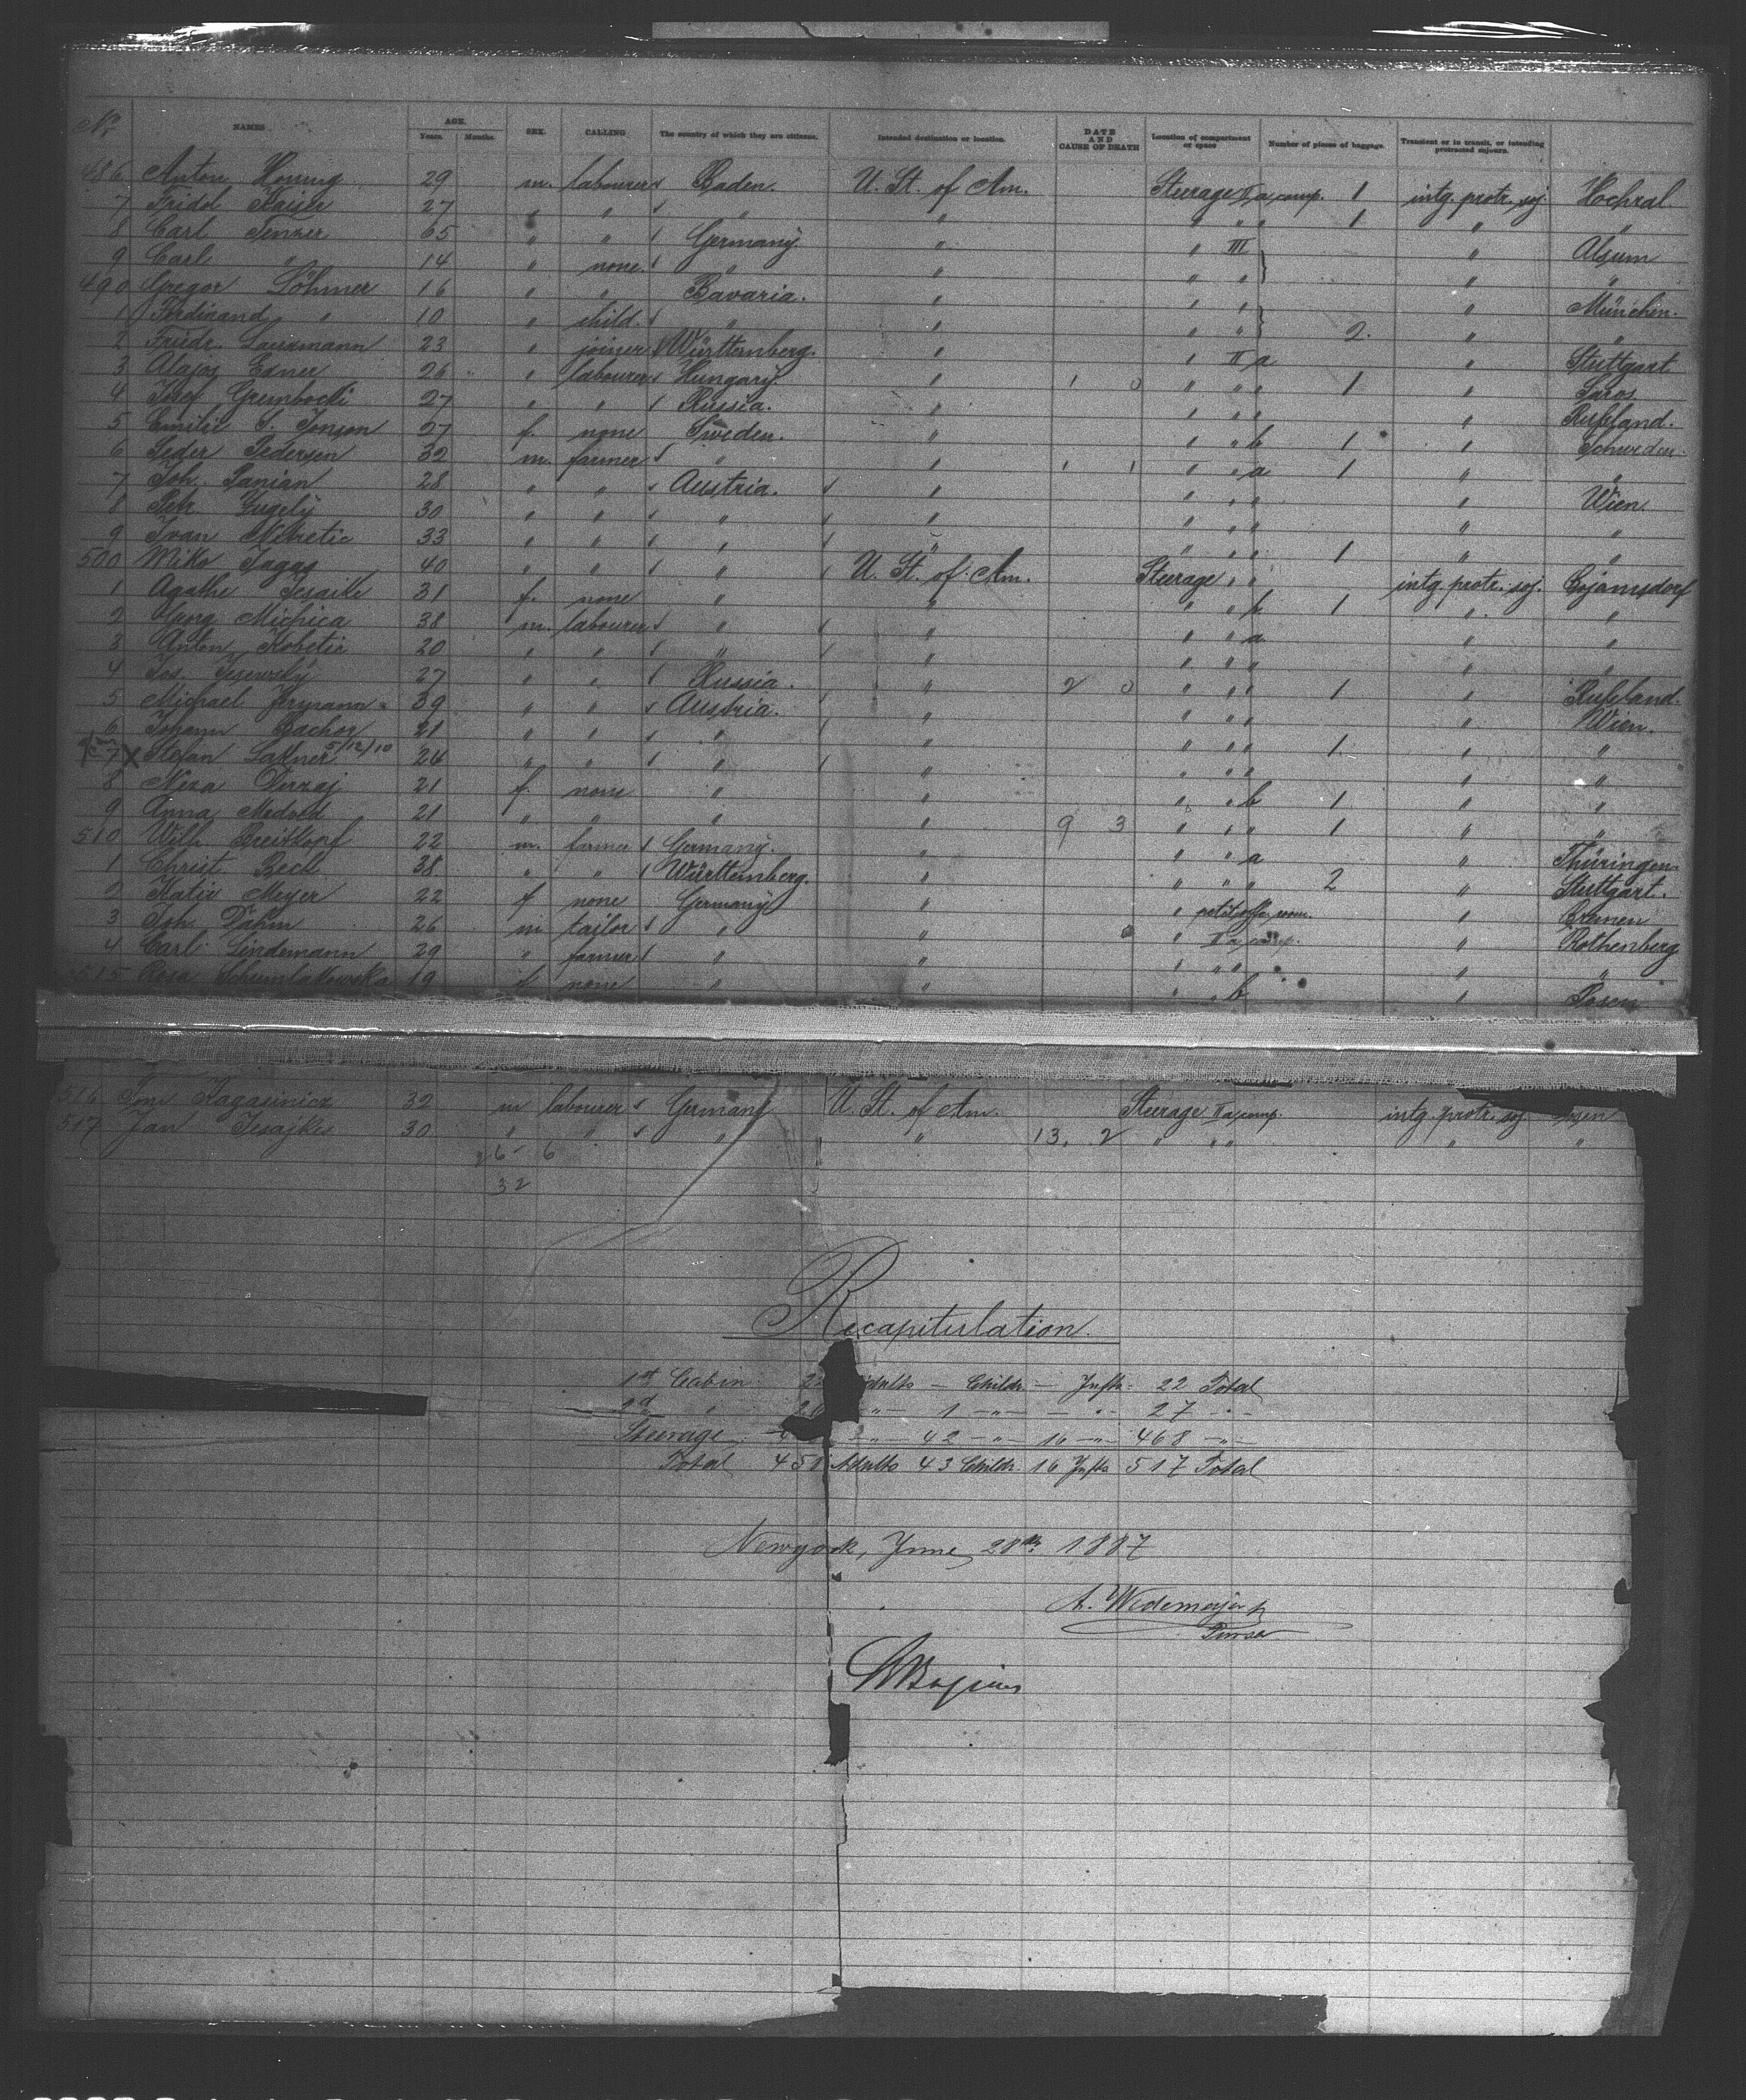 No. NAMES AGE. Years. Months. SEX. CALLING The country of which they are citizens. Intended destination or location. DATE AND CAUSE OF DEATH Location of compartment or space Number of pieces of baggage. Transient or in transit, or intending protracted sojourn.
486 Anton 29 m. labourer Baden. U. St. of Am. Steerage II a comp. 1 intg. protr. soj. Hochsal
7 Fridol Kaiser 27 " " " " " " " 1 " "
8 Carl Tenzer 65 " " Germany " " III " Alsum
9 Carl " 14 " none. " " " " " "
490 Gregor Löhmer 16 " " Bavaria. " " " " München.
1 Ferdinand " 10 " child. " " " " 2. " "
2 Friedr. 23 " joiner Württemberg. " " II a " Stuttgart
3 Alajos Exner 26 " labourer Hungary. " 1 0 " " " 1 " Saros
4 Josef Grembocki 27 " " Russia. " " " " " Rußland.
5 Emilie S. Jonson 27 f. none Sweden. " " " b 1 " Schweden.
6 Peder Pedersen 32 m. farmer " " 1 1 " " a 1 " "
7 Joh. Panian 28 " " Austria. " " " " " Wien
8 Petr. 30 " " " " " " " " "
9 Ivan 33 " " " " " " " 1 " "
500 Miko 40 " " " U. St. of Am. Steerage " " intg. protr. soj.
1 Agathe 31 f. none " " " " b 1 " "
2 Michica 38 m. labourer " " " " a " "
3 Anton Kobetic 20 " " " " " " " " "
4 Jos. 27 " " Russia. " 2 0 " " " 1 " Rußland.
5 Michael 39 " " Austria. " " " " " Wien.
6 Johann Bachor 21 " " " " " " " 1 " "
7 X Stefan Lakner 5/12/10 24 " " " " " " " " "
8 Neza Derzaj 21 f. none " " " " b 1 " "
9 Anna Medved 21 " " " " 9 3 " " " 1 " "
510 Wilh. Breitkopf 22 m. farmer Germany. " " " a " Thüringen.
1 Christ. Bech 38 " " Württemberg. " " " " 2 " Stuttgart.
2 Katie Meyer 22 f none Germany " " petit offic. room. " Bremen
3 Joh. Dähm 26 m tailor " " " II a comp. " Rothenberg
4 Carl Lindemann 29 " farmer " " " " " " "
515 Rosa 19 f. none " " " " b " Posen
516 32 m labourer Germany U. St. of Am. Steerage II a comp. intg. protr. soj.
517 Jan 30 " " " " 13. 2 " " " " "
26 - 6
32
Recapitulation.
1st Cabin: 22 Adults — Childr. — Infts. 22 Total
2d " 26 " 1 " — " 27 "
Steerage " 42 " 16 " 468 "
Total 458 Adults 43 Childr. 16 Infts 517 Total
Newyork, June 28th 1887
A. Wedemeyer
Purser